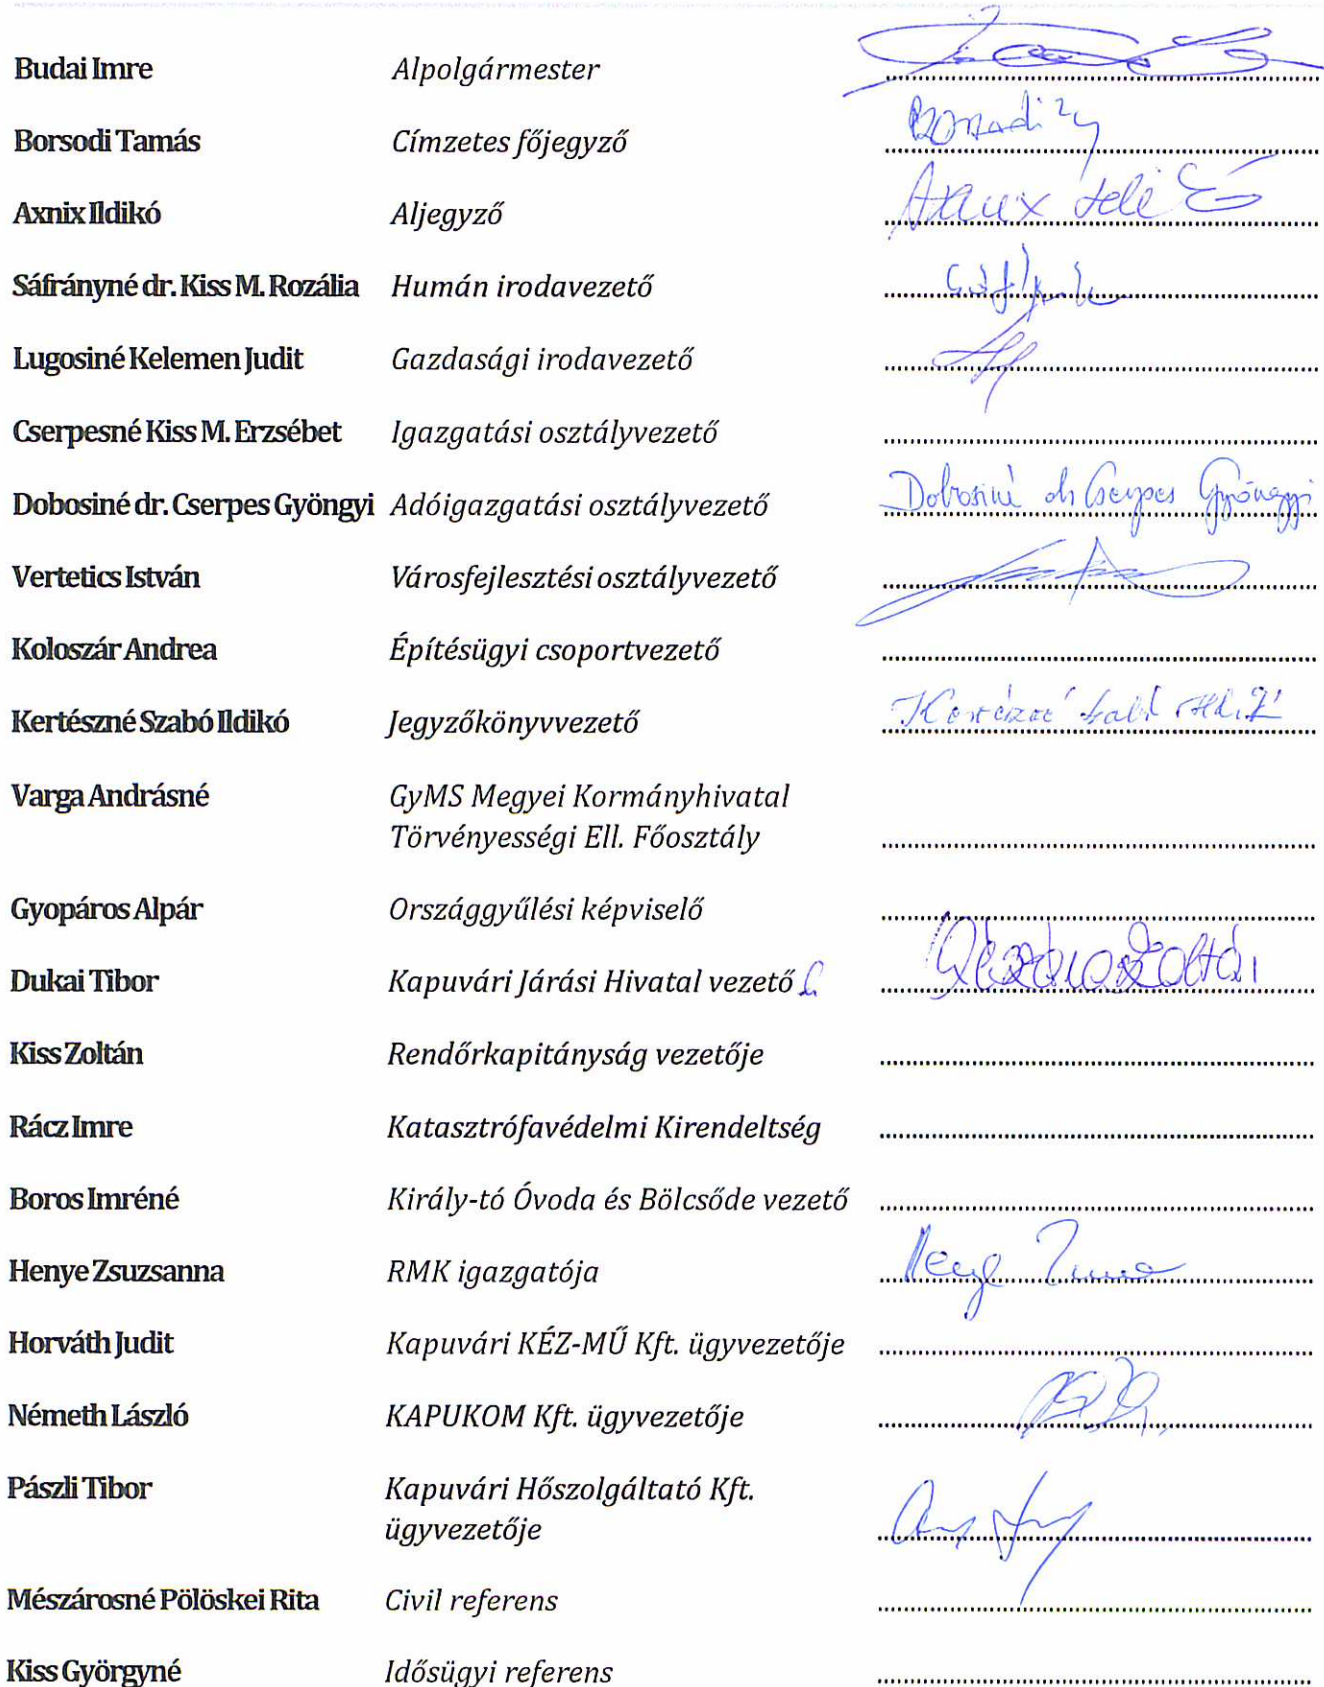 Budai Imre Alpolgármester
Borsodi Tamás Címzetes főjegyző Borsodi
Axnix Ildikó Aljegyző
Sáfrányné dr. Kiss M. Rozália Humán irodavezető
Lugosiné Kelemen Judit Gazdasági irodavezető
Cserpesné Kiss M. Erzsébet Igazgatási osztályvezető
Dobosiné dr. Cserpes Gyöngyi Adóigazgatási osztályvezető Dobosiné dr Cserpes Gyöngyi
Vertetics István Városfejlesztési osztályvezető
Koloszár Andrea Építésügyi csoportvezető
Kertészné Szabó Ildikó Jegyzőkönyvvezető Kertészné Szabó Ildikó
Varga Andrásné GyMS Megyei Kormányhivatal
Törvényességi Ell. Főosztály
Gyopáros Alpár Országgyűlési képviselő
Dukai Tibor Kapuvári Járási Hivatal vezető Zoltán
Kiss Zoltán Rendőrkapitányság vezetője
Rácz Imre Katasztrófavédelmi Kirendeltség
Boros Imréné Király-tó Óvoda és Bölcsőde vezető
Henye Zsuzsanna RMK igazgatója Henye
Horváth Judit Kapuvári KÉZ-MŰ Kft. ügyvezetője
Németh László KAPUKOM Kft. ügyvezetője
Pászli Tibor Kapuvári Hőszolgáltató Kft.
ügyvezetője
Mészárosné Pölöskei Rita Civil referens
Kiss Györgyné Idősügyi referens